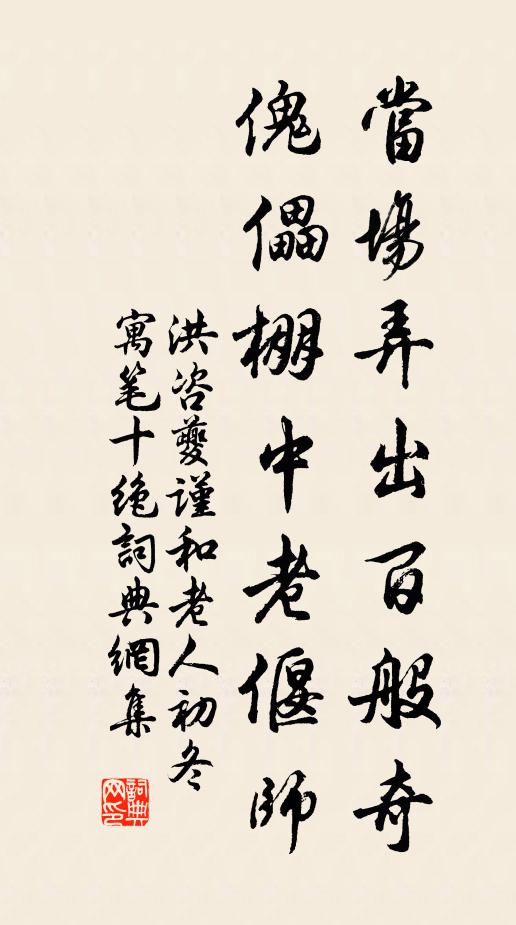 當場弄出百般奇
傀儡棚中老偃師
洪咨夔謹和老人初冬
寓笔十絶詞典網集
詞典
网印